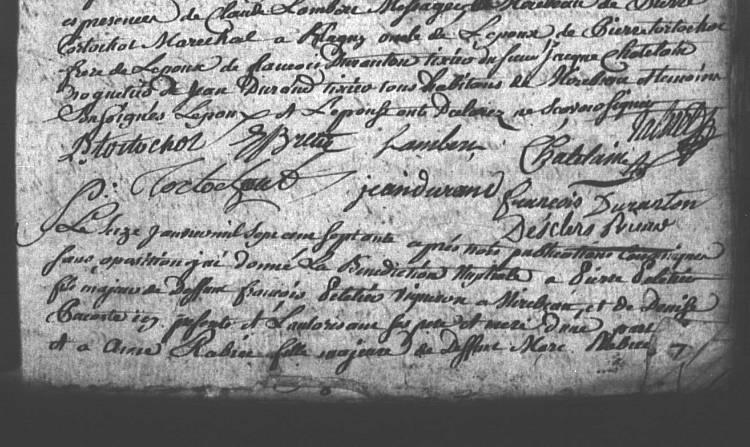 es presences de Claude Lambert Messager, de Mirebeau de Pierre
tortochot Marechal a Blagny oncle de Lepoux de Pierre tortochot
frere de Lepoux de francois Duranton tixier du sieur Jacque Chatelain
de Jean Durand tixier tous habitans de Mirebeau et temoins
soussignés Lepoux et Lepouse ont declarez ne scavoir signer
P. tortochot Lambert Chatelain
P. Tortochaut jean durand francois Duranton
Desclers
Le seize janvier mil sept cent septante apres nos publications
sans oposition j'ai donné La Benediction Nuptiale a Pierre
fils majeur de Deffunt francois vigneron a Mirebeau, et de Denise
icy presente et L'autorisant ses pere et mere d'une part
et a Anne Robin fille majeure de Deffunt Marc